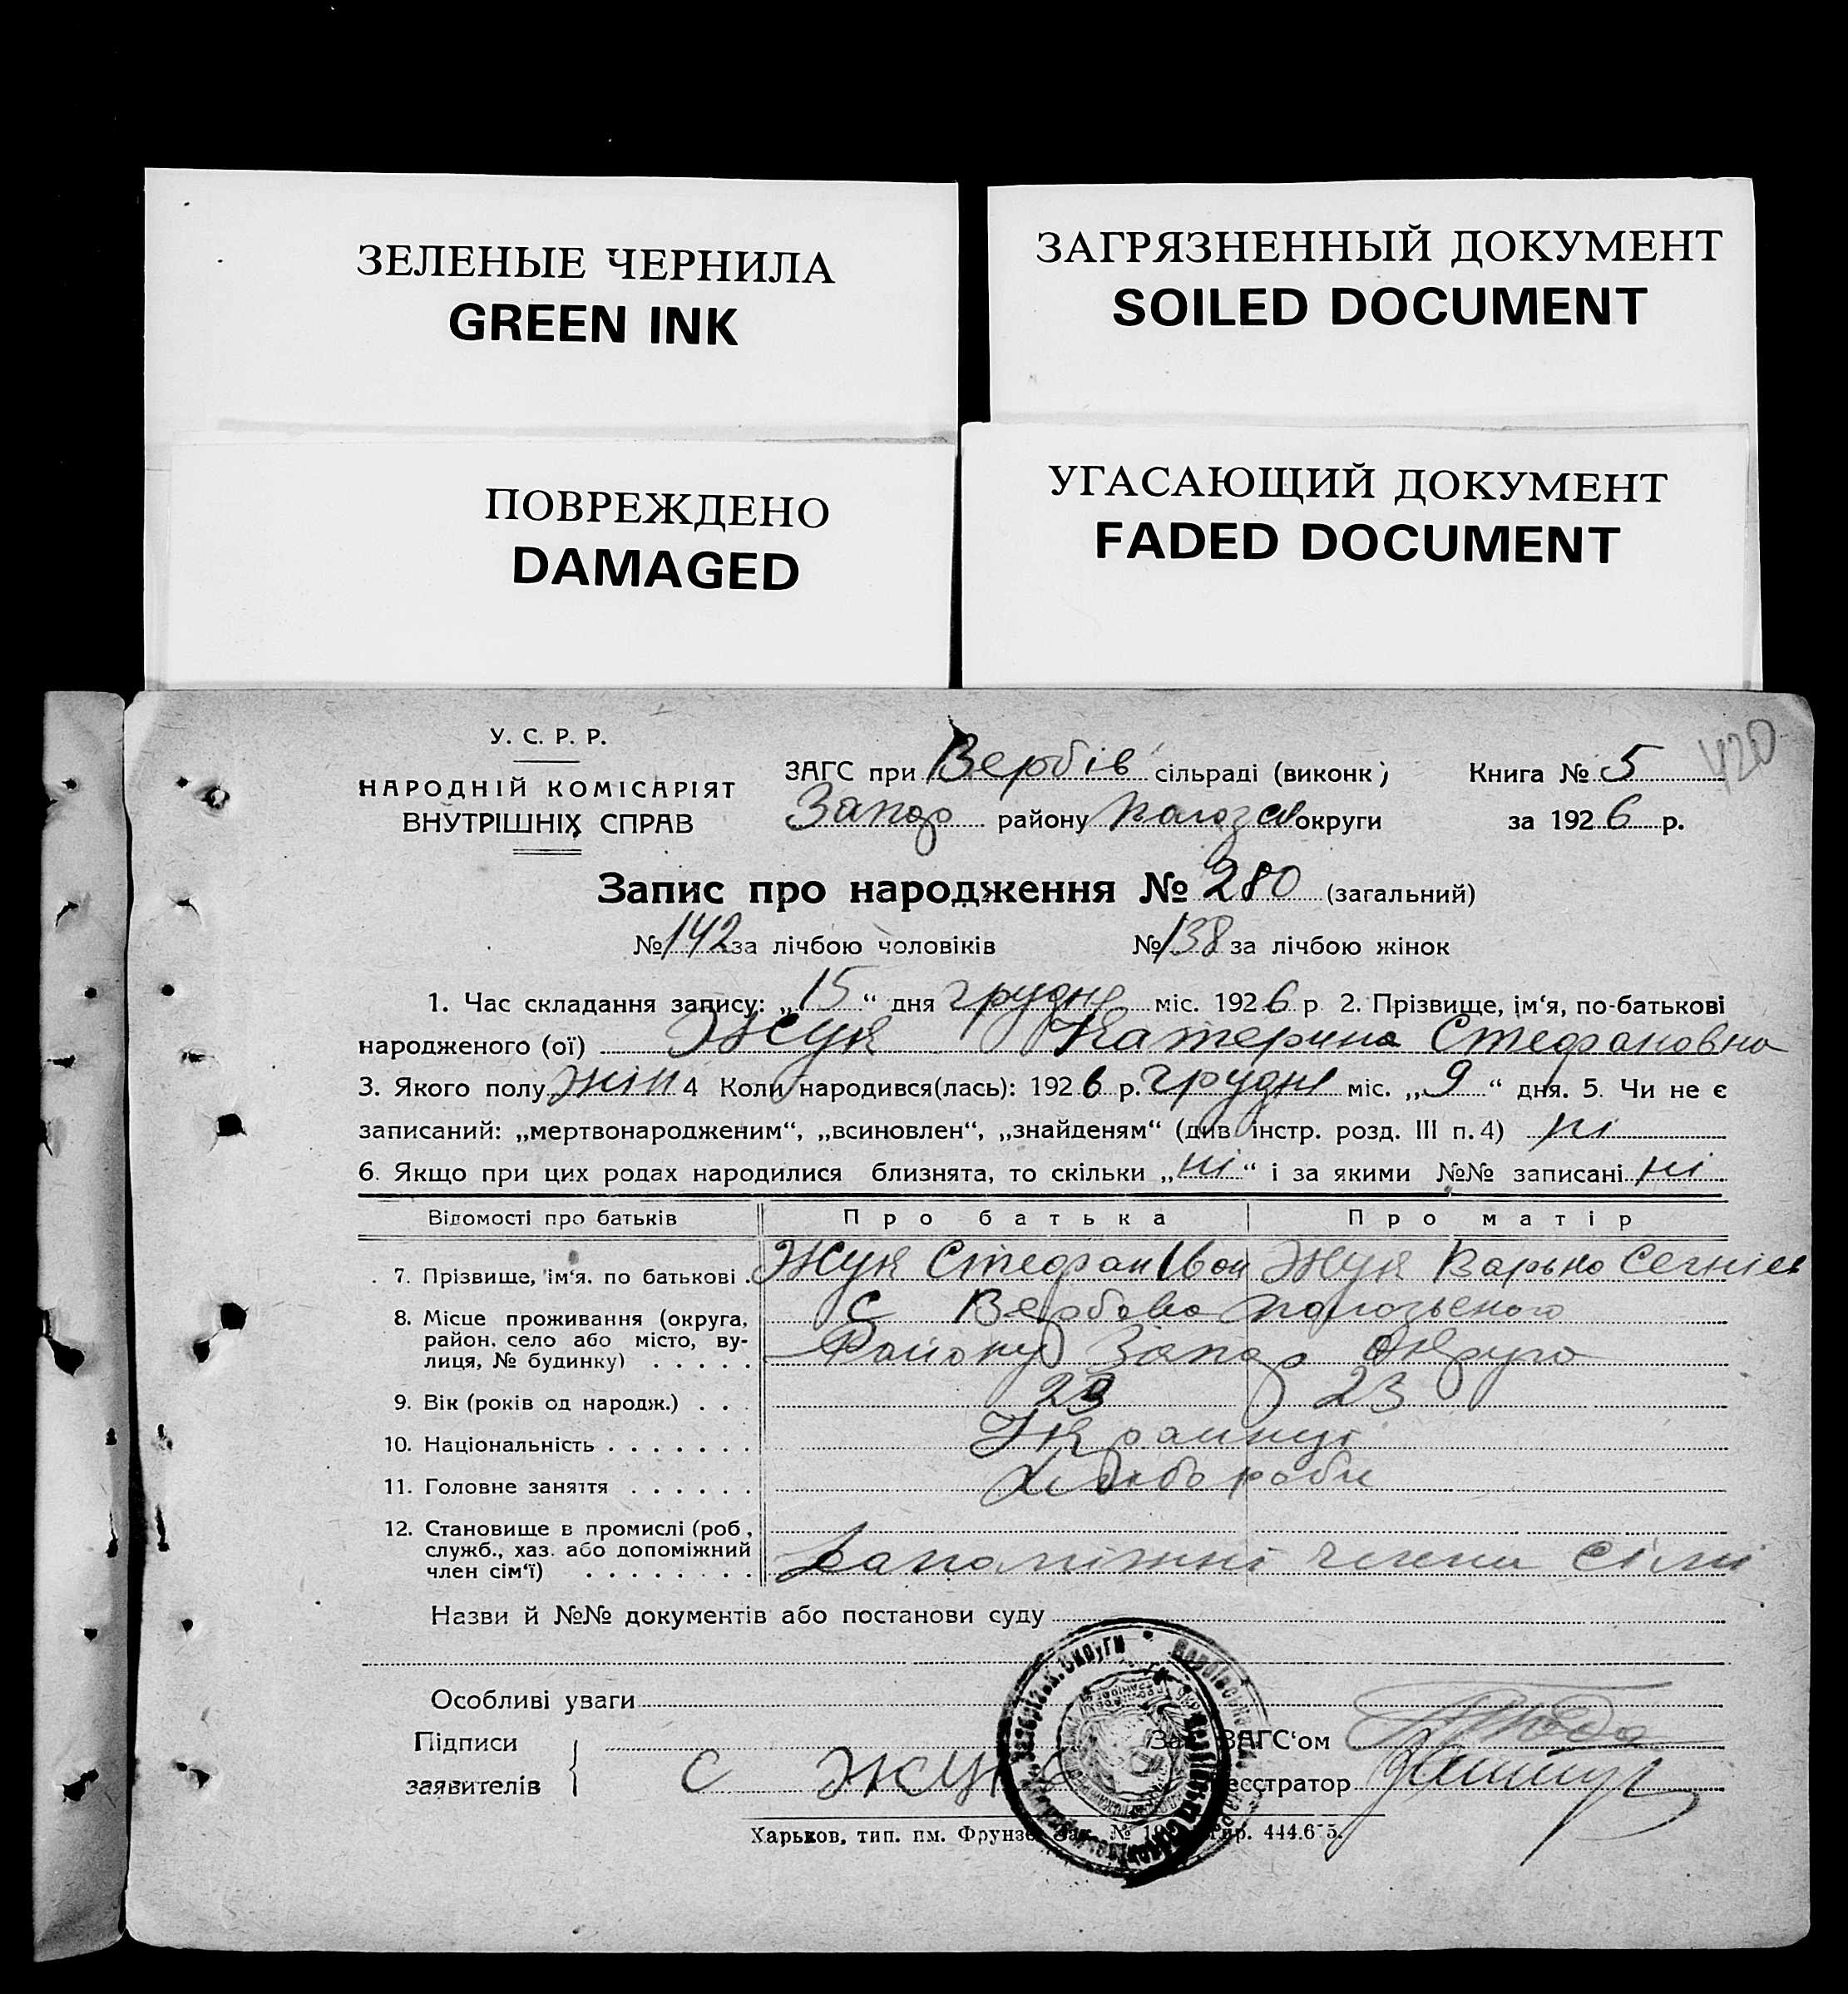 ЗЕЛЕНЫЕ ЧЕРНИЛА
GREEN INK
ЗАГРЯЗНЕННЫЙ ДОКУМЕНТ
SOILED DOCUMENT
ПОВРЕЖДЕНО
DAMAGED
УГАСАЮЩИЙ ДОКУМЕНТ
FADED DOCUMENT
420
У. С. Р. Р.
НАРОДНІЙ КОМІСАРІЯТ
ВНУТРІШНІХ СПРАВ
ЗАГС при Вербів сільраді (виконк) Книга № 5
Запор району Пологов округи за 1926 р.
Запис про народження № 280 (загальний)
№ 142 за лічбою чоловіків № 138 за лічбою жінок
1. Час складання запису: „15“ дня грудня міс. 1926 р 2. Прізвище, ім‘я, по-батькові
народженого (ої) Жук Катерина Стефановна
3. Якого полу жін 4 Коли народився(лась): 1926 р. грудня міс. „9“ дня. 5. Чи не є
записаний: „мертвонародженим“, „всиновлен“, „знайденям“ (див інстр. розд. III п. 4) ні
6. Якщо при цих родах народилися близнята, то скільки „ні“ і за якими №№ записані ні
Відомості про батьків Про батька Про матір
7. Прізвище, ім‘я. по батькові . Жук Стефан Іван Жук Варька
8. Місце проживання (округа, с Вербова
район, село або місто, ву- Району Запор округа
лиця, № будинку) . . . . .
9. Вік (років од народж.) . . . 23 23
10. Національність . . . . . . . Українці
11. Головне заняття . . . . . . Хліборобы
12. Становище в промислі (роб,
служб., хаз. або допоміжний
член сім‘ї) . . . . . . . . допоміжні члени сімі
Назви й №№ документів або постанови суду
Особливі уваги
Підписи
Зав ЗАГС‘ом
заявителів с Жук
Реєстратор
Харьков, тип. им. Фрунзе. Зак. №